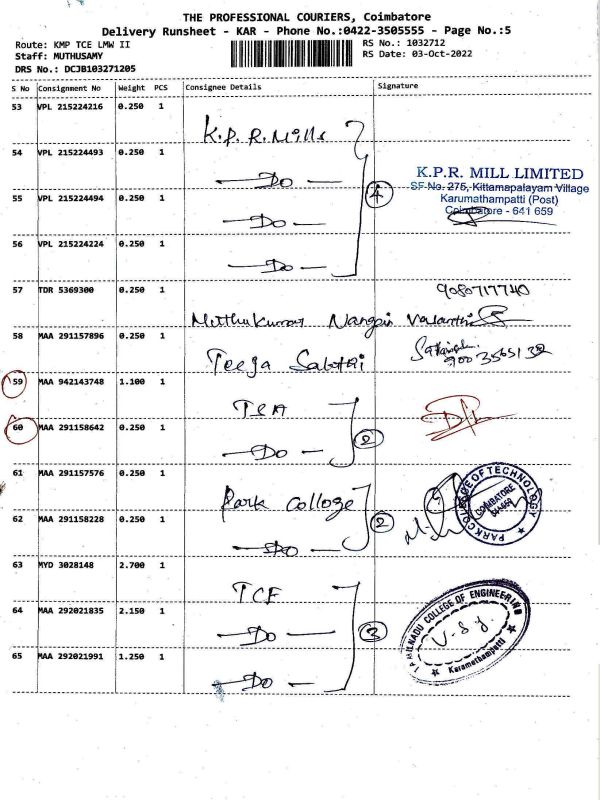 THE PROFESSIONAL COURIERS, Coimbatore
Delivery Runsheet - KAR - Phone No.:0422-3505555 - Page No.:5
Route: KMP TCE LMW II
RS No.: 1032712
Staff: MUTHUSAMY
RS Date: 03-Oct-2022
DRS No.: DCJB103271205
S No Consignment No Weight PCS Consignee Details Signature
53 VPL 215224216 0.250 1
K.P.R. Mills
54 VPL 215224493 0.250 1
Do
4
K.P.R. MILL LIMITED
SF No. 275, Kittamapalayam Village
55 VPL 215224494 0.250 1
Karumathampatti (Post)
Coimbatore - 641 659
Do
56 VPL 215224224 0.250 1
Do
57 TDR 5369300 0.250 1
9080717740
58 MAA 291157896 0.250 1
Teeja
59 MAA 942143748 1.100 1
60 MAA 291158642 0.250 1
2
Do
61 MAA 291157576 0.250 1
Park College
PARK COLLEGE OF TECHNOLOGY
COIMBATORE
62 MAA 291158228 0.250 1
2
Do
63 MYD 3028148 2.700 1
TCE
64 MAA 292021835 2.150 1
Do
3
TAMILNADU COLLEGE OF ENGINEERING
Karumathampatti
65 MAA 292021991 1.250 1
Do